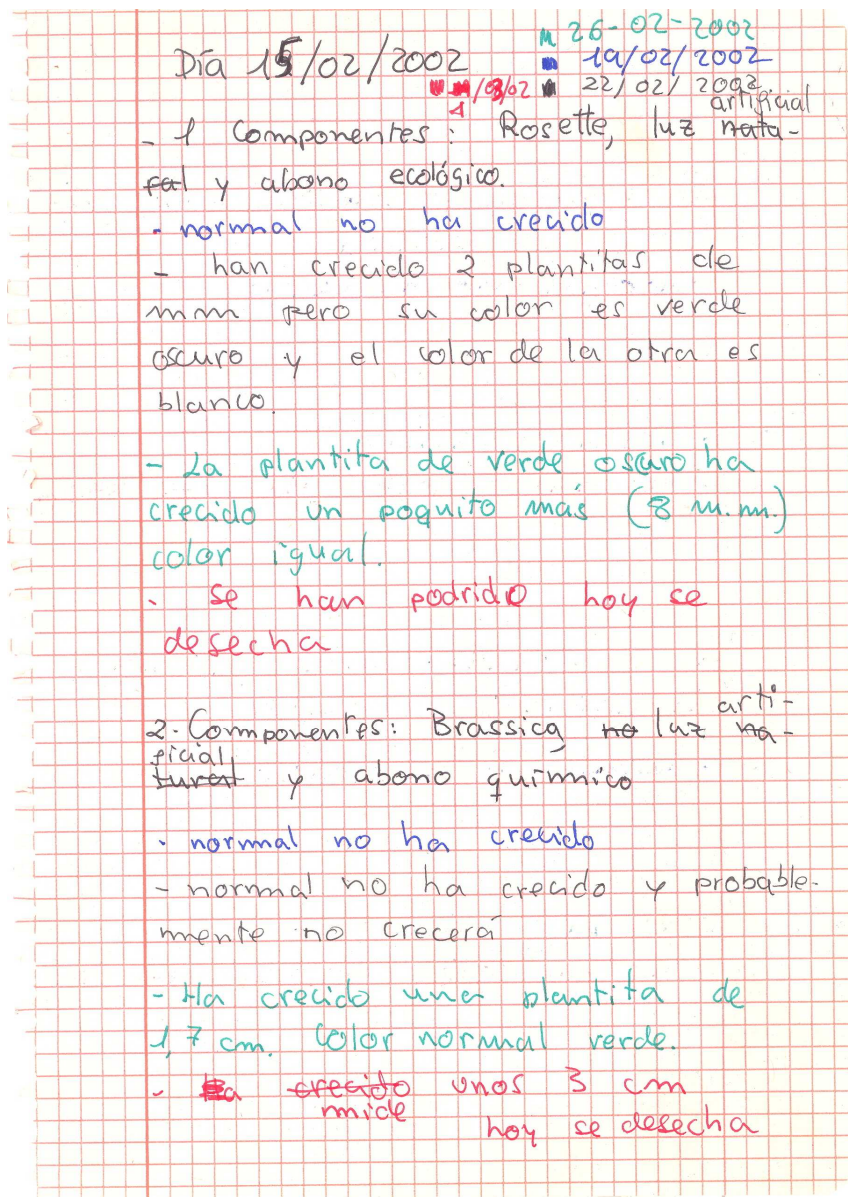 26-02-2002
Día 15/02/2002
19/02/2002
1/03/02
22/02/2002
artificial
- 1 Componentes: Rosette, luz natu-
ral y abono ecológico.
- normal no ha crecido
- han crecido 2 plantitas de
mm pero su color es verde
oscuro y el color de la otra es
blanco.
- La plantita de verde oscuro ha
crecido un poquito más (8 m.m.)
color igual.
- se han podrido hoy se
desecha
arti-
2. Componentes: Brassica, no luz na-
ficial
tural y abono químico
- normal no ha crecido
- normal no ha crecido y probable-
mente no crecerá
- Ha crecido una plantita de
1,7 cm. Color normal verde.
- Ha crecido unos 3 cm
mide
hoy se desecha